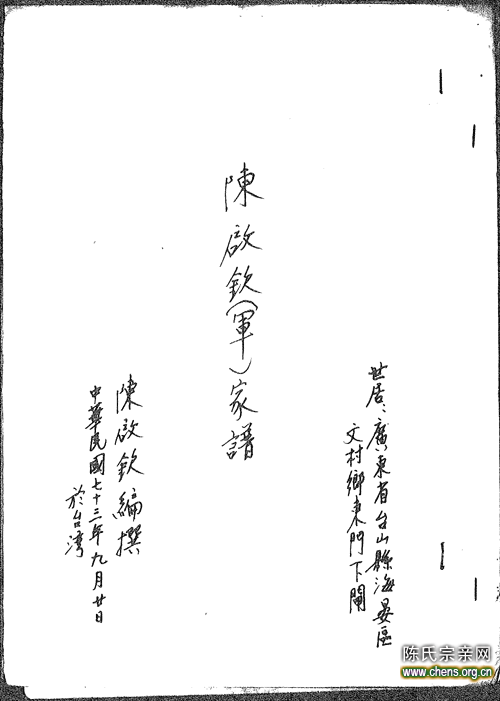 世居、廣東省台山縣海晏區
文村鄉東門下閘
陳啟欽(軍)家譜
陳啟欽編撰
中華民國七十三年九月廿日
於台灣
陈氏宗亲网
www.chens.org.cn